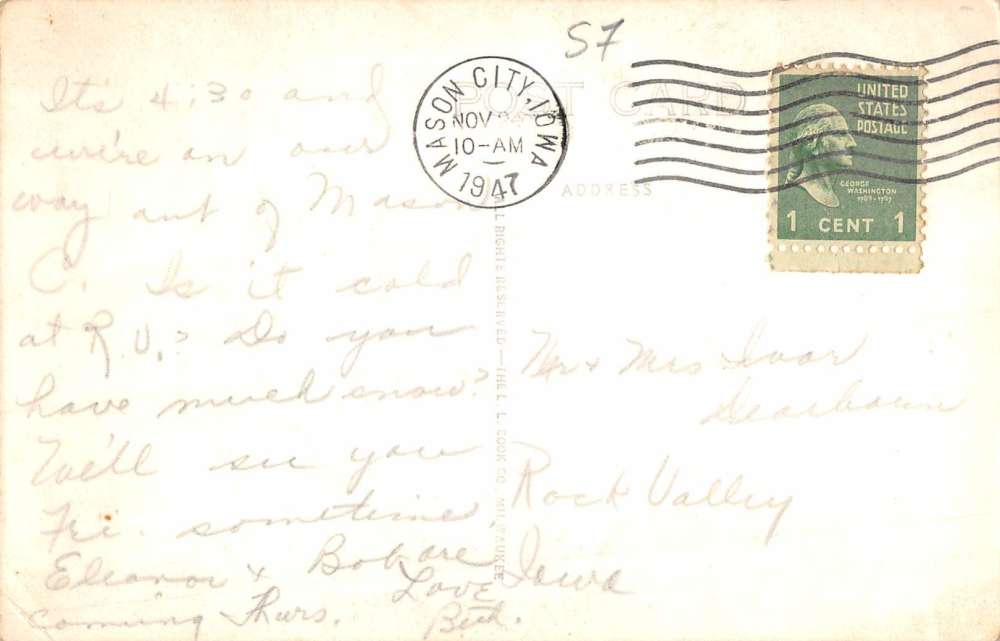 S7
POST CARD
MASON CITY, IOWA
NOV
10-AM
1947
UNITED
STATES
POSTAGE
GEORGE
WASHINGTON
1 CENT 1
ADDRESS
It's 4:30 and
we're on our
way out of Mason
C. Is it cold
at R.V.? Do you
have much snow?
We'll see you
Fri. sometime,
Eleanor & Bob are
coming Thurs.
Love
Beth.
ALL RIGHTS RESERVED—THE L. L. COOK CO. MILWAUKEE
Mr & Mrs Ivar
Dearbourn
Rock Valley
Iowa